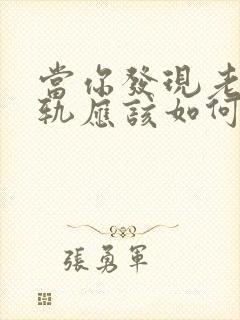 當你發現老
軌應該如何
張勇軍